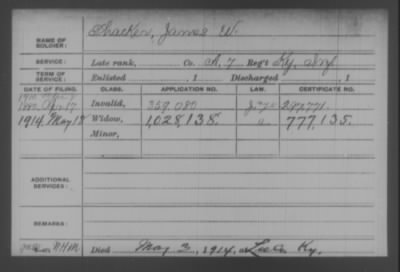 NAME OF SOLDIER: Thacker, James W.
SERVICE: Late rank, Co. A, 7 Reg't Ky. Inf
TERM OF SERVICE: Enlisted , 1 Discharged , 1
DATE OF FILING. CLASS. APPLICATION NO. LAW. CERTIFICATE NO.
Invalid, 359.080 287.771.
1914. May 18 Widow, 1,028,138. " 777,135.
Minor,
ADDITIONAL SERVICES:
REMARKS:
Died May 3, 1914, at Ky.